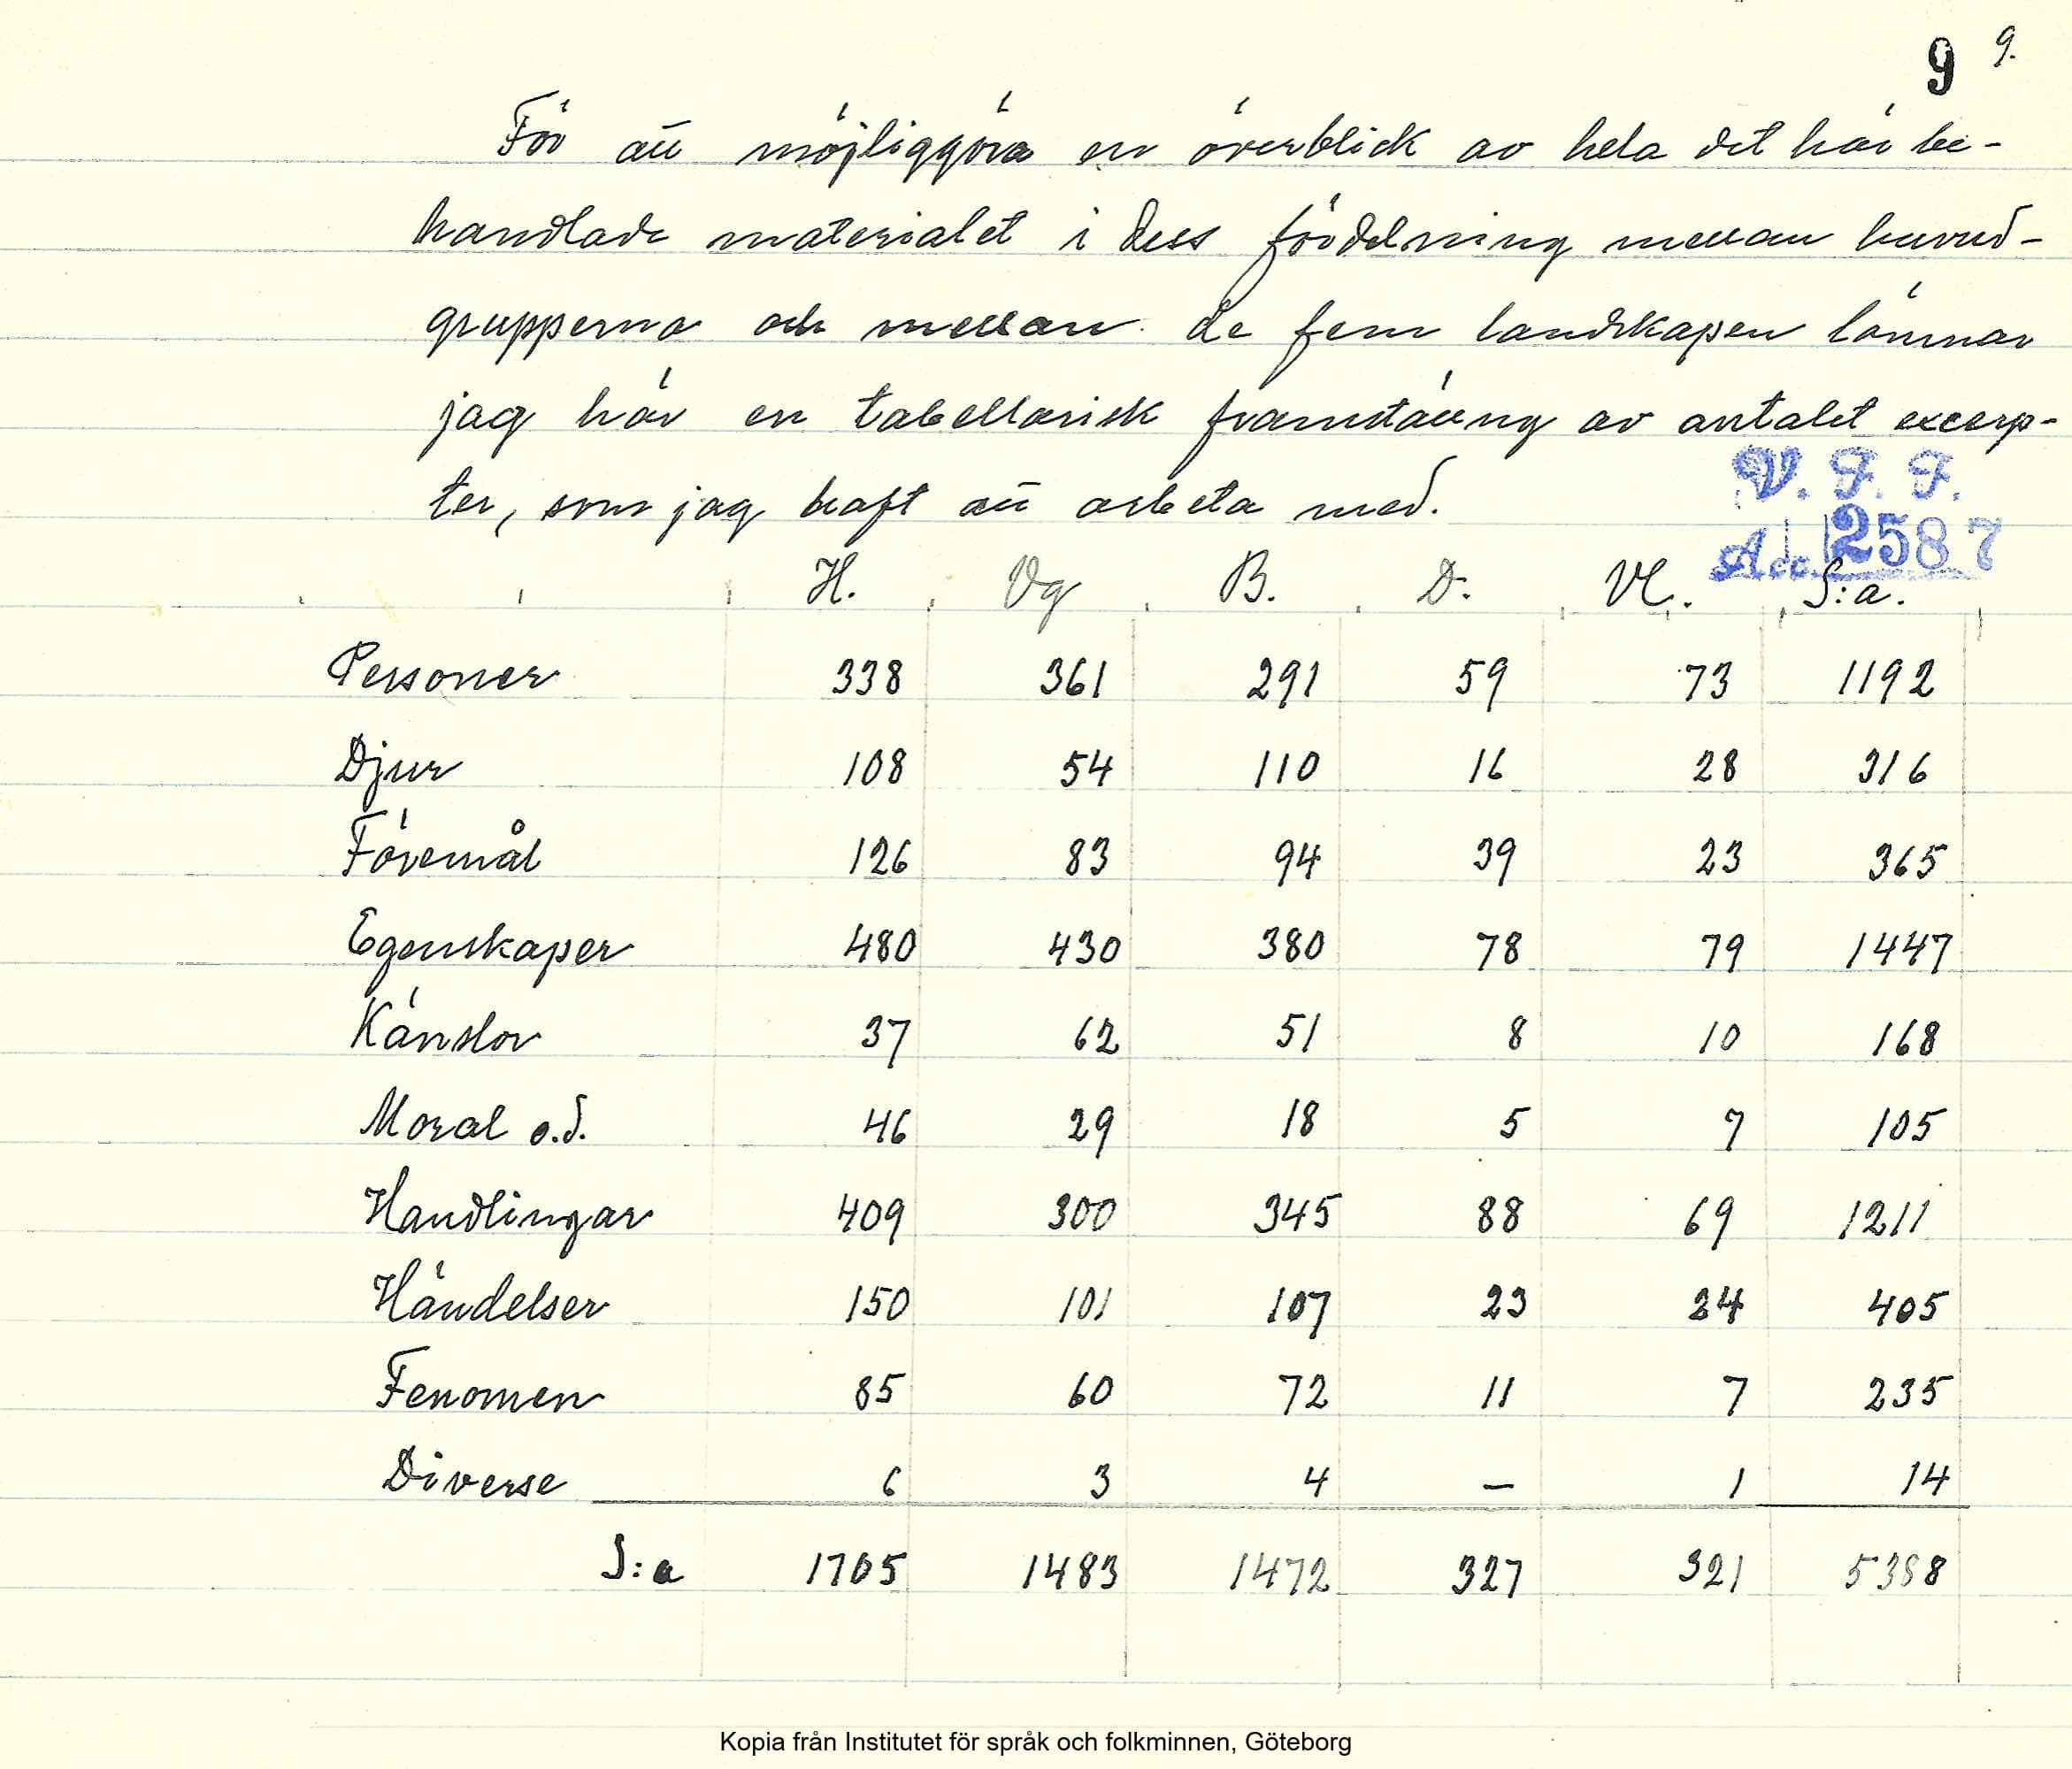 9 9.
För att möjliggöra en överblick av hela det här be-
handlade materialet i dess fördelning mellan huvud-
grupperna och mellan de fem landskapen lämnar
jag här en tabellarisk framställning av antalet excerp-
ter, som jag haft att arbeta med.
V. F. F.
Acc. 2587
H. Vg B. D. Vl. S:a.
Personer 338 361 291 59 73 1122
Djur 108 54 110 16 28 316
Föremål 126 83 94 39 23 365
Egenskaper 480 430 380 78 79 1447
Känslor 37 62 51 8 10 168
Moral o.d. 46 29 18 5 7 105
Handlingar 409 300 345 88 69 1211
Händelser 150 101 107 23 24 405
Fenomen 85 60 72 11 7 235
Diverse 6 3 4 — 1 14
S:a 1785 1483 1472 327 321 5388
Kopia från Institutet för språk och folkminnen, Göteborg